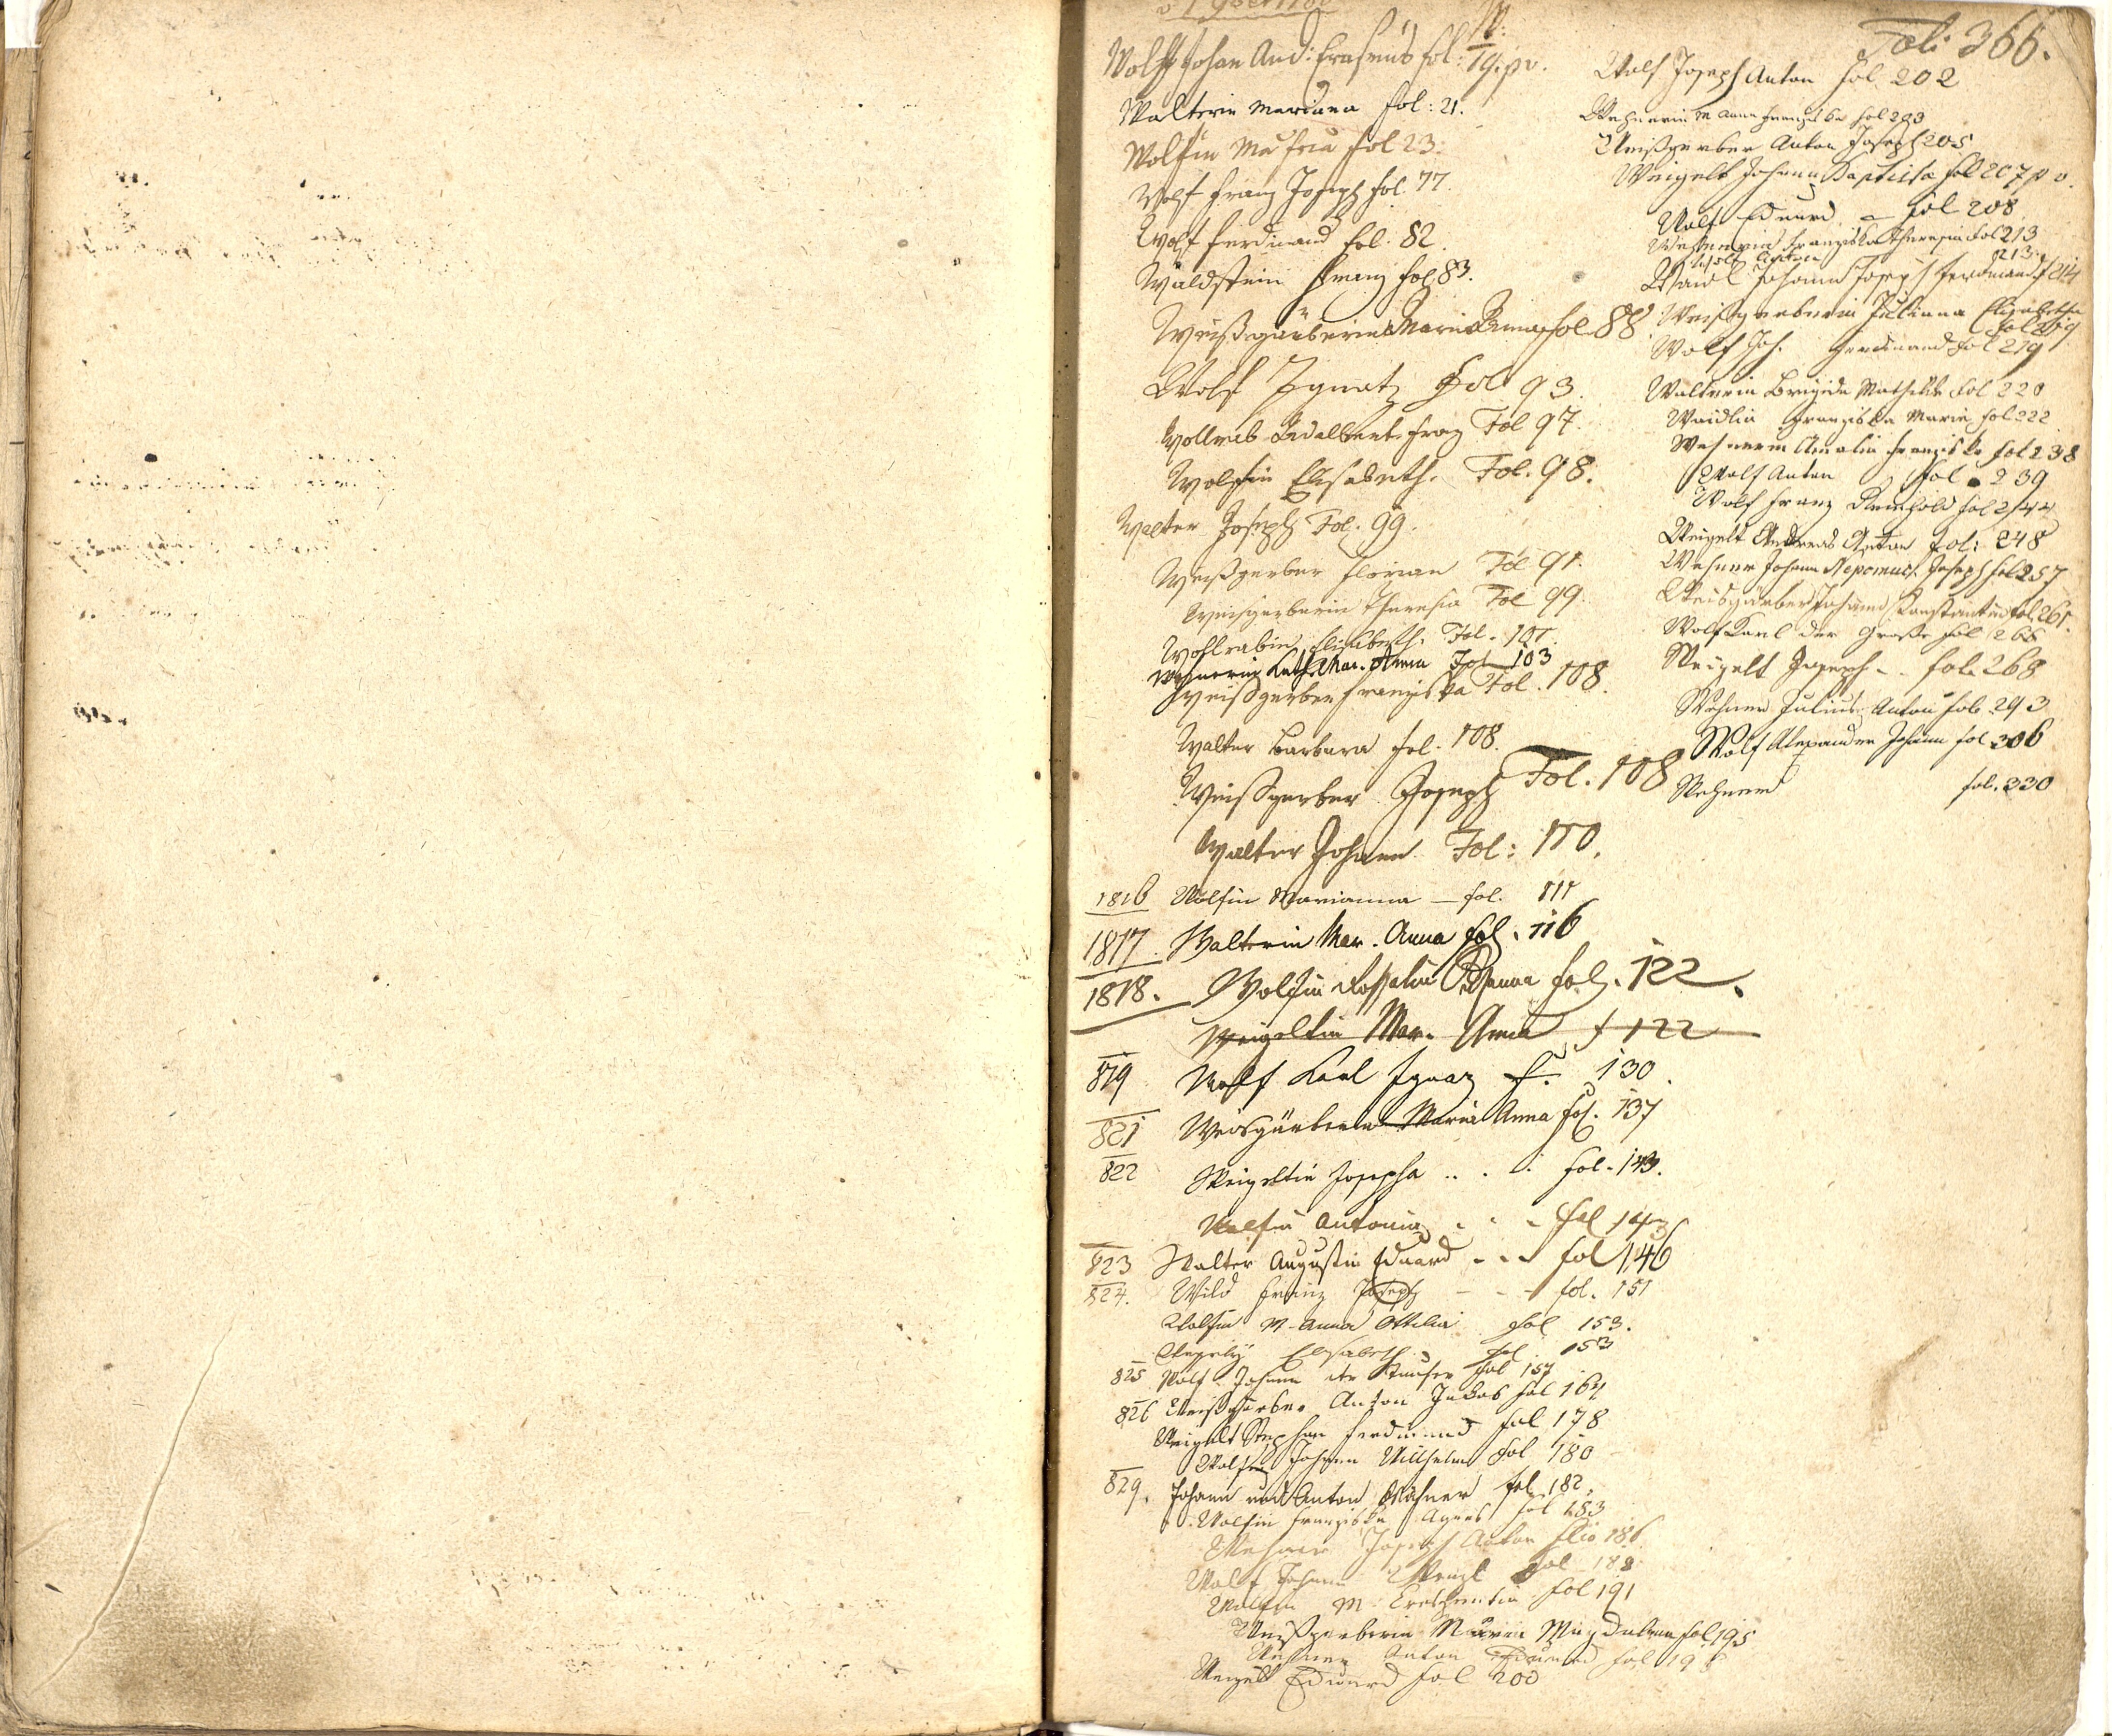 Foli 366.
W.
Wolff Johan And: Erasmus fol: 19. p v.
Walterin Mariana fol: 21.
Wolfin fol 23.
Wolf Franz Joseph fol. 77.
Wolf Ferdinand fol. 82.
Waldstein Franz fol 83.
Weißgärberin Maria Anna fol. 88
Wolf Ignatz Fol 93.
Wollrab Adalbert Franz Fol 97.
Wolfin Elisabeth. Fol. 98.
Walter Joseph Fol. 99.
Weißgerber Florian Fol 91.
Weisgerberin Theresia Fol 99.
Wohlrabin Elisabeth. Fol. 101.
Wehnerin Kath. Mar. Anna Fol 103
Weißgerber Franziska Fol. 108.
Walter Barbara fol. 108.
Weißgerber Joseph Fol. 108
Walter Johann. Fol: 110.
1816 Wolfin Marianna — fol. 111
1817. Walterin Mar. Anna fol. 116
1818. Wolfin Rosalia Anna fol. 122.
Weigeltin Mar. Anna f 122
819 Wolf Karl Ignaz f. 130.
821 Weisgärberin Maria Anna fol. 137
822 Weigeltin Josepha . . . fol. 143.
Wolfin Antonia - - - fol 143
823 Walter Augustin Eduard - - - fol 146
824. Wild Franz Joseph - - - fol. 151
Wolfin M. Anna Ottilia fol 153.
Elisabeth fol 153
825 Wolf Johann der Täufer fol 157
826 Weißgärber Anton Jakob fol 164
Weigelt Stephan Ferdinand fol 178
Wolf Johann Wilhelm fol 180
829. Johann und Anton Wehner fol 182.
Wolfin Franziska Agnes fol 183
Wehner Joseph Anton folio 186
Wolf Johann Wenzl fol 188
Wolfin M. Creszentia fol 191
Weißgerberin Maria Magdalena fol 195
Wehner Anton Eduard fol 19
Weigelt Eduard fol 200
Wolf Joseph Anton fol 202
Wehnerin M Anna Franziska fol 203
Weißgerber Anton Joseph 205
Weigelt Johann Baptista fol 207 p v.
Wolf Eduard — fol 208
Wehnerin Franziska Theresia fol 213
213.
Waidl Johann Joseph Ferdinand f 214
Weißgerberin Juliana Elisabetha
fol 219
Wolf Joh. Ferdinand fol 219
Walterin Brigida Mathilde fol 220
Waidlin Franziska Maria fol 222
Wehnerin Amalia Franziska fol 238
Wolf Anton fol. 239
Wolf Franz Reinhold fol 244
Weigelt Andreas Anton fol: 248
Wehner Johann Nepomuck Joseph fol 257
Weisgärber Johann Konstantin fol 261.
Wolf Karl der Große fol 266
Weigelt Joseph - . fol. 268
Wehner Julius Anton fol. 293
Wolf Alexander Johann fol 306
Wehner fol. 330